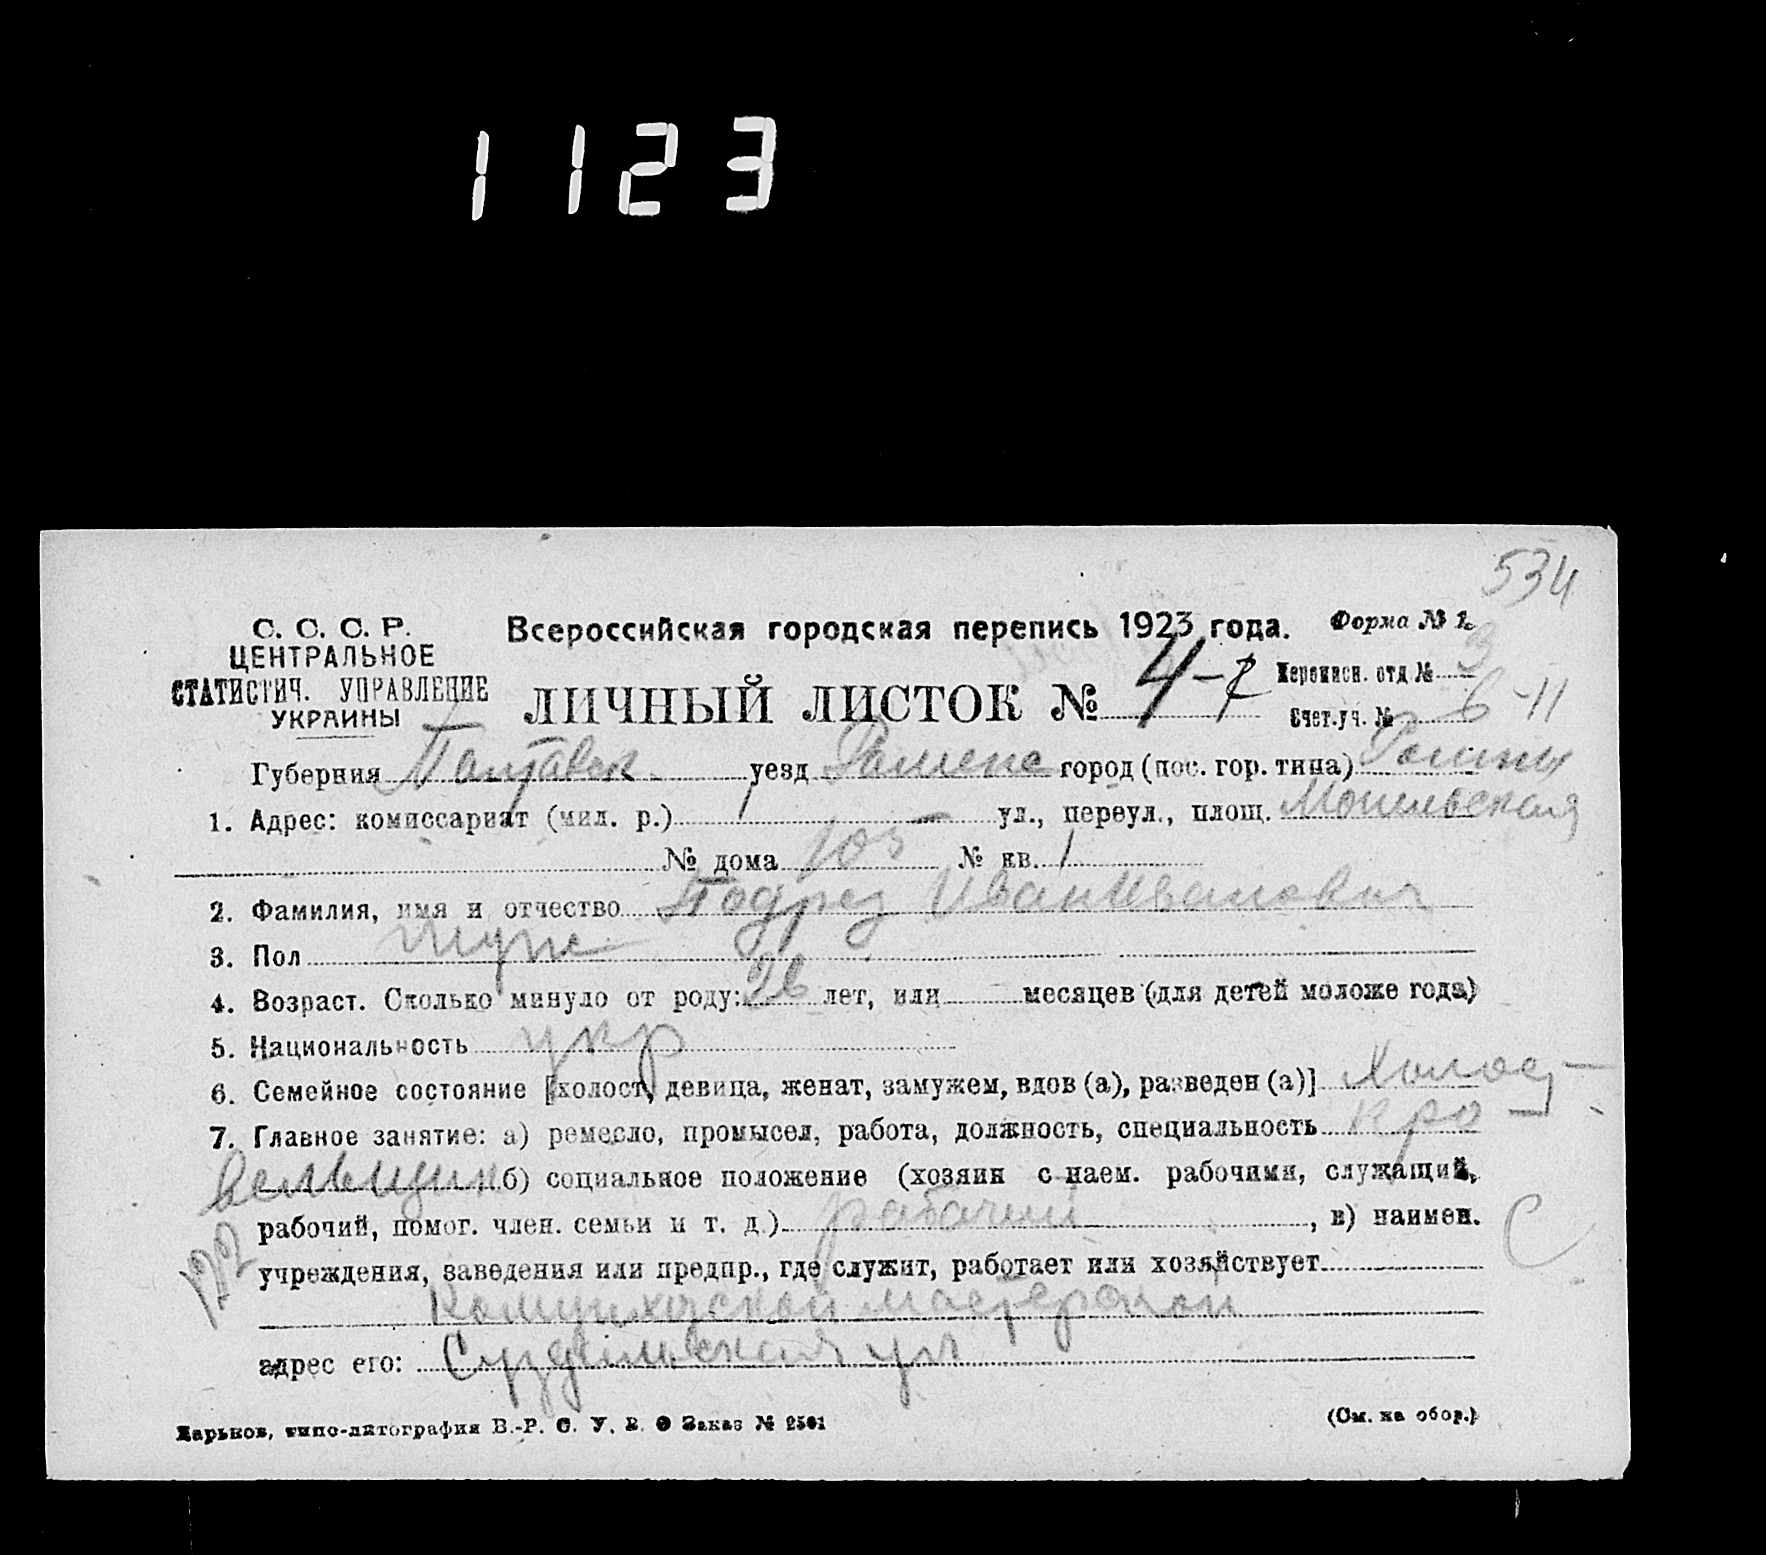 1123
534
С. С. С. Р.
ЦЕНТРАЛЬНОЕ
СТАТИСТИЧ. УПРАВЛЕНИЕ
УКРАИНЫ
Всероссийская городская перепись 1923 года. Форма № 1.
ЛИЧНЫЙ ЛИСТОК № 4-7
Переписн. отд № 3
Счет.уч. № 6-11
Губерния Полтавск уезд Роменс город (пос. гор. типа) Ромны
1. Адрес: комиссариат (мил. р.) 1 ул., переул., площ.
№ дома 105 № кв. 1
2. Фамилия, имя и отчество Подрез Иван Иванович
3. Пол муж
4. Возраст. Сколько минуло от роду: 26 лет, или месяцев (для детей моложе года)
5. Национальность укр
6. Семейное состояние [холост, девица, женат, замужем, вдов (а), разведен (а)] Холост
7. Главное занятие: а) ремесло, промысел, работа, должность, специальность кро-
вельщик б) социальное положение (хозяин с наем. рабочими, служащий,
рабочий, помог. член. семьи и т. д.) рабочий, в) наимен.
С
учреждения, заведения или предпр., где служит, работает или хозяйствует
мастерской
адрес его: ул
Харьков, типо-литография В.-Р. С. У. В. О Заказ № 2501
(См. на обор.)